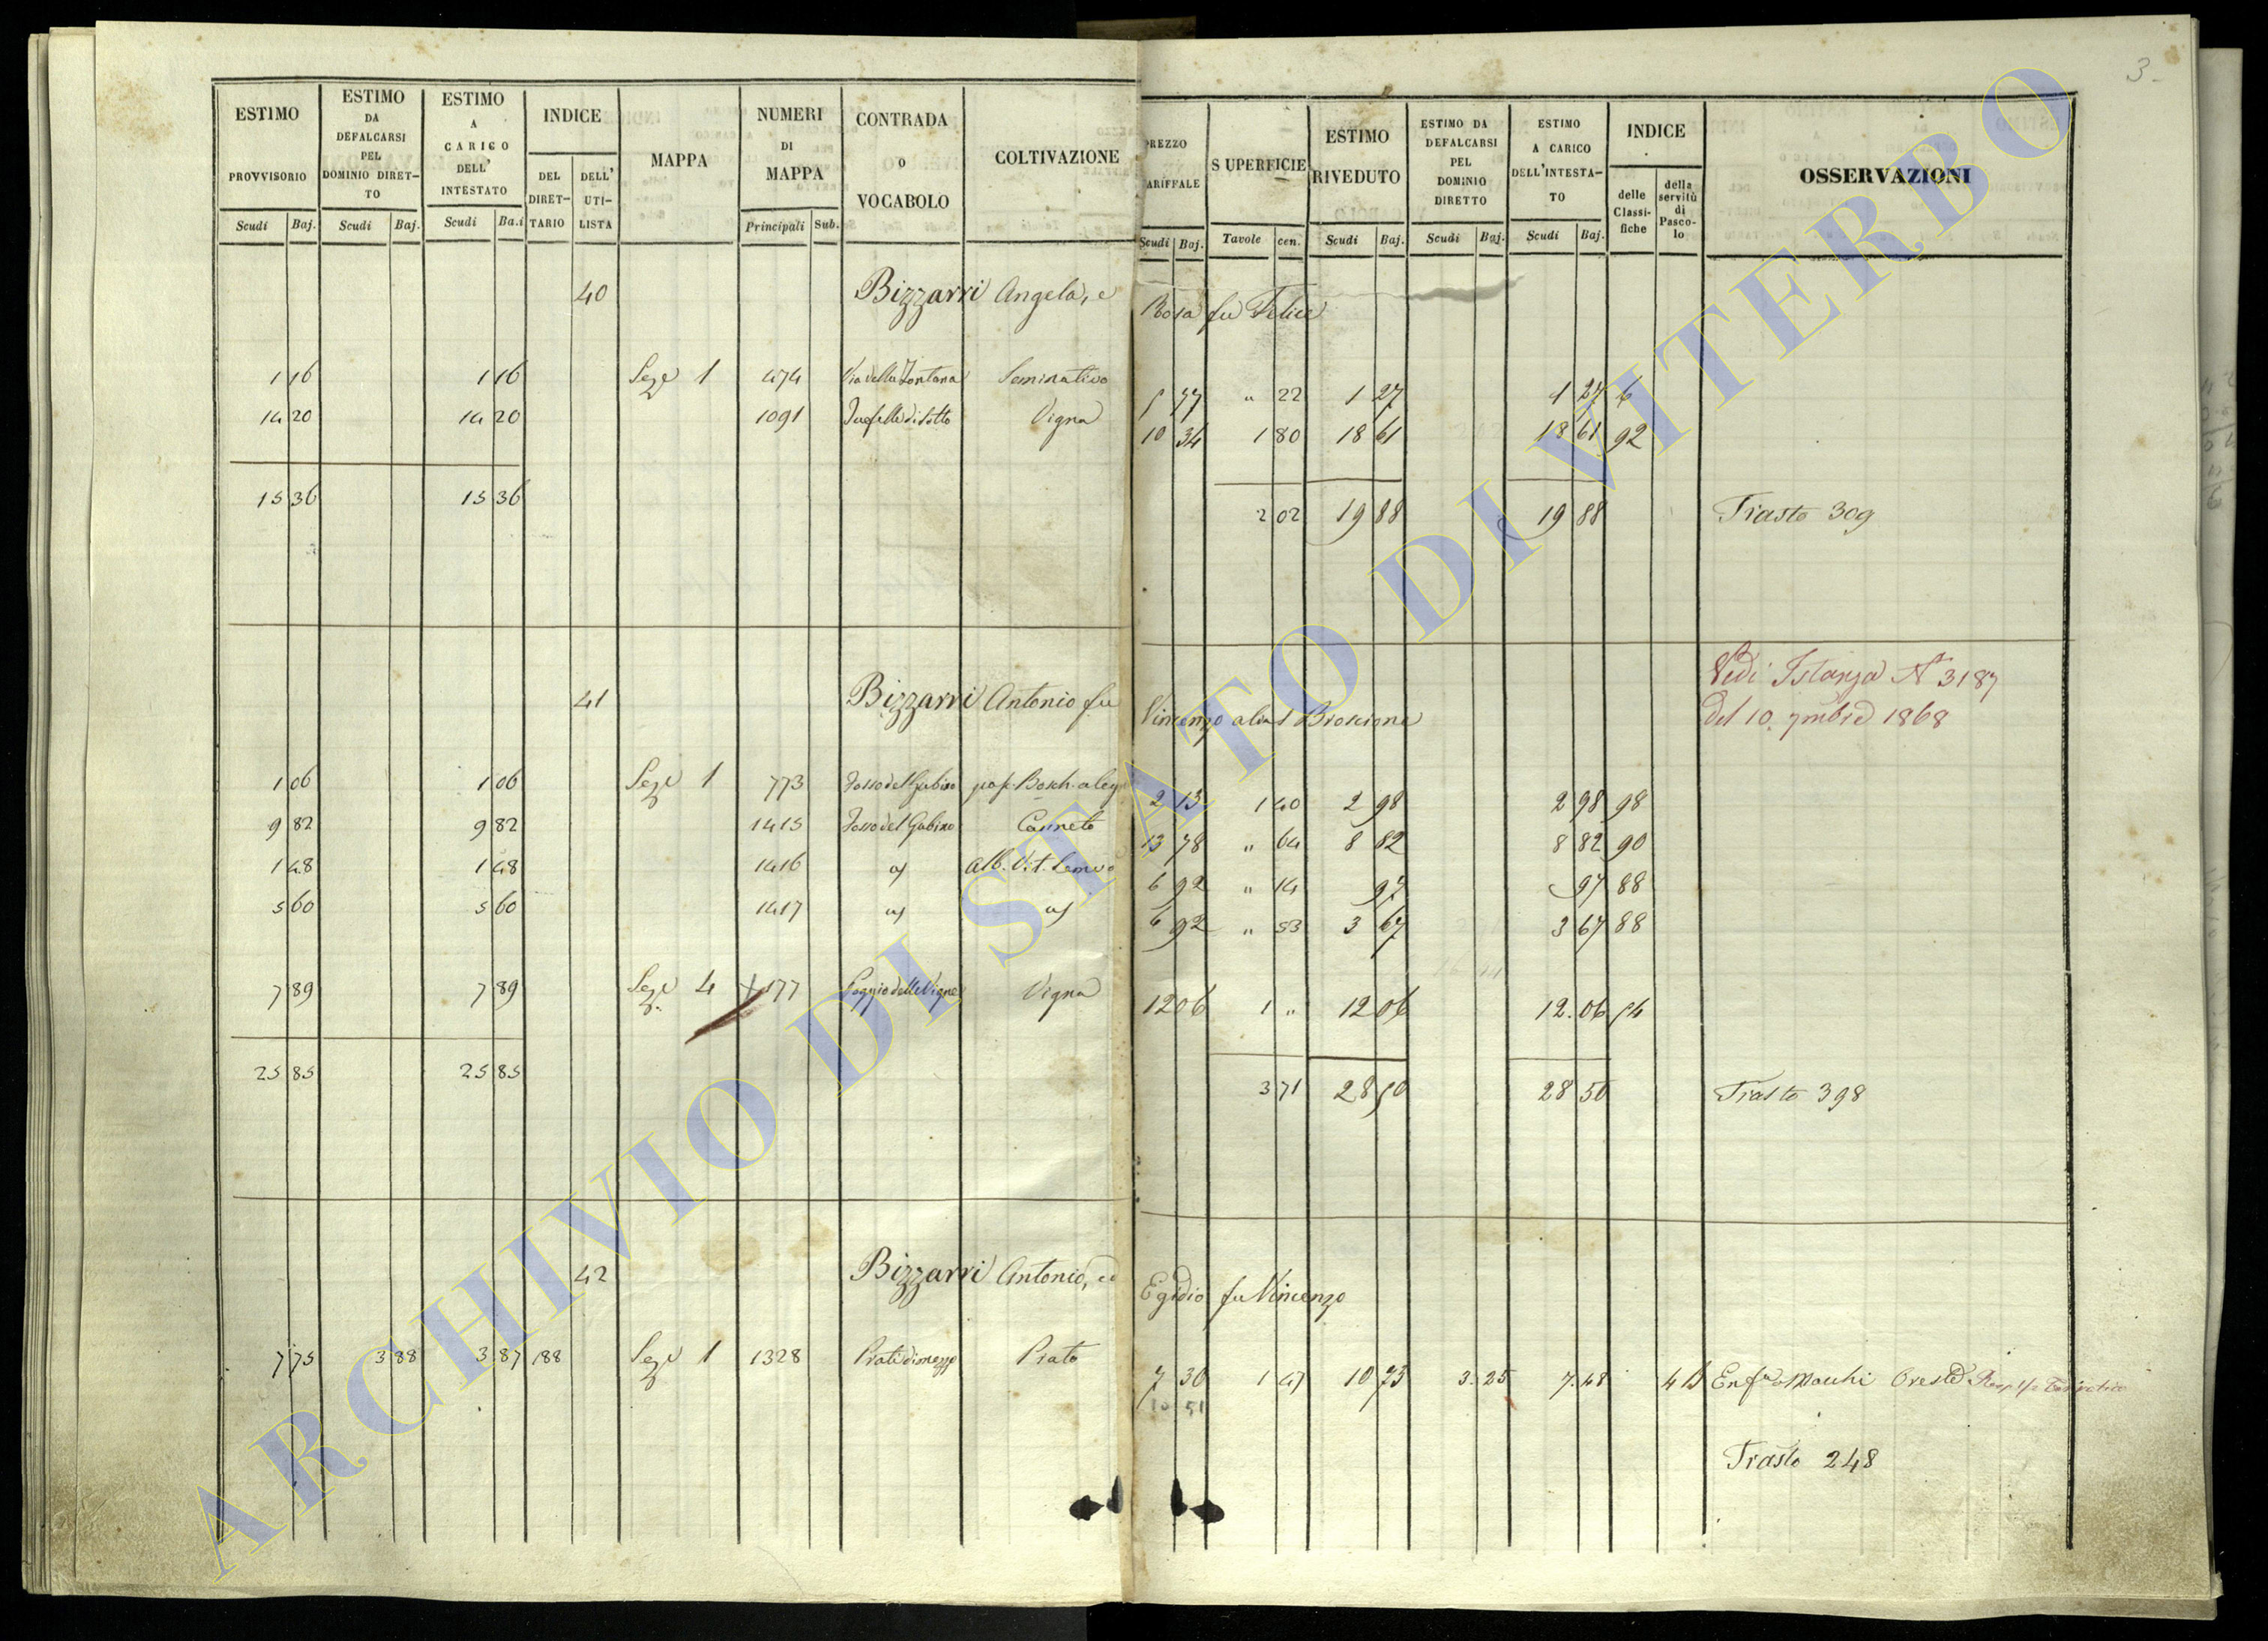 3
ESTIMO PROVVISORIO Scudi Baj.
ESTIMO DA DEFALCARSI PEL DOMINIO DIRETTO Scudi Baj.
ESTIMO A CARICO DELL' INTESTATO Scudi Baj.
INDICE DEL DIRETTARIO DELL' UTILISTA
MAPPA
NUMERI DI MAPPA Principali Sub.
CONTRADA O VOCABOLO
COLTIVAZIONE
PREZZO TARIFFALE Scudi Baj.
SUPERFICIE Tavole cen.
ESTIMO RIVEDUTO Scudi Baj.
ESTIMO DA DEFALCARSI PEL DOMINIO DIRETTO Scudi Baj.
ESTIMO A CARICO DELL'INTESTATO Scudi Baj.
INDICE delle Classifiche della servitù di Pascolo
OSSERVAZIONI
40 Bizzarri Angela, e Rosa fu Felice
1 16 1 16 Seze 1 474 Via della Fontana Seminativo 5 77 " 22 1 27 1 27 6
14 20 14 20 1091 di Sotto Vigna 10 34 1 80 18 61 18 61 92
15 36 15 36 2 02 19 88 19 88 Trasto 309
Vedi Istanza N° 3187
del 10. 7mbre 1868
41 Bizzarri Antonio fu Vincenzo alias Broscione
1 06 1 06 Seze 1 773 Fosso del Gubino pas. Bosch. a leg 2 13 1 40 2 98 2 98 98
9 82 9 82 1415 Fosso del Gubino Canneto 13 78 " 64 8 82 8 82 90
1 48 1 48 1416 a) Alb. Vit. Semvo 6 92 " 14 97 97 88
5 60 5 60 1417 a) a) 6 92 " 53 3 67 3 67 88
7 89 7 89 Seze 4 + 177 Poggio delle Vigne Vigna 12 06 1 " 12 06 12.06 54
25 85 25 85 3 71 28 50 28 50 Trasto 398
42 Bizzarri Antonio, ed Egidio fu Vincenzo
7 75 3 88 3 87 188 Seze 1 1328 Prati di mezzo Prato 7 30 1 47 10 73 3.25 7.48 4 B Enfa a Macchi Oreste
10 51
Trasto 248
ARCHIVIO DI STATO DI VITERBO